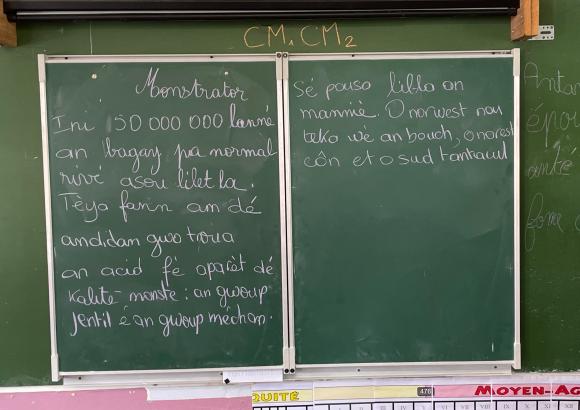 CM1 CM2
Monstrator
Ini 50 000 000 lanné
an bagay pa normal
rivé asou lilèt la.
Tèya farin am dé
andidan gwo troua
an acid fè aparèt dé
kalité monste : an gwoup
jentil é an gwoup méchan.
Sé pouso libla an
manniè. O norwest nou
téka wè an bouch, o norest
côn et o sud tantacul
Antar
épo
antré
fome
QUITÉ
476
MOYEN-AG